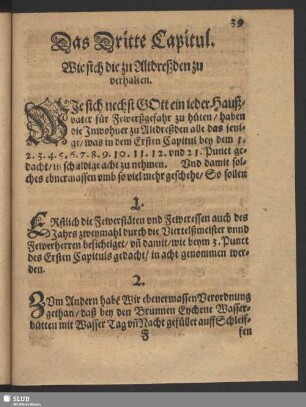 39
Das Dritte Capitul.
Wie sich die zu Altdreßden zu
verhalten.
WJe sich nechst GOtt ein jeder Hauß-
vater für Fewersgefahr zu hüten / haben
die Inwohner zu Altdreßden alle das jeni-
ge / was in dem Ersten Capitul bey dem 1.
2. 3. 4. 5. 6. 7. 8. 9. 10. 11. 12. vnd 21. Punct ge-
dacht / in schuldige acht zu nehmen. Vnd damit sol-
ches ebnermassen vmb so viel mehr geschehe / So sollen
1.
ERstlich die Fewerstäten vnd Feweressen auch des
Jahrs zweymahl durch die Viertelßmeister vnnd
Fewerherren besichtiget / vñ damit / wie beym 3. Punct
des Ersten Capituls gedacht / in acht genommen wer-
den.
2.
ZVm Andern habē Wir ebenermassen Verordnung
gethan / daß bey den Brunnen Eychene Wasser-
bütten mit Wasser Tag vñ Nacht gefüllet auff Schleif-
F
fen
SLUB